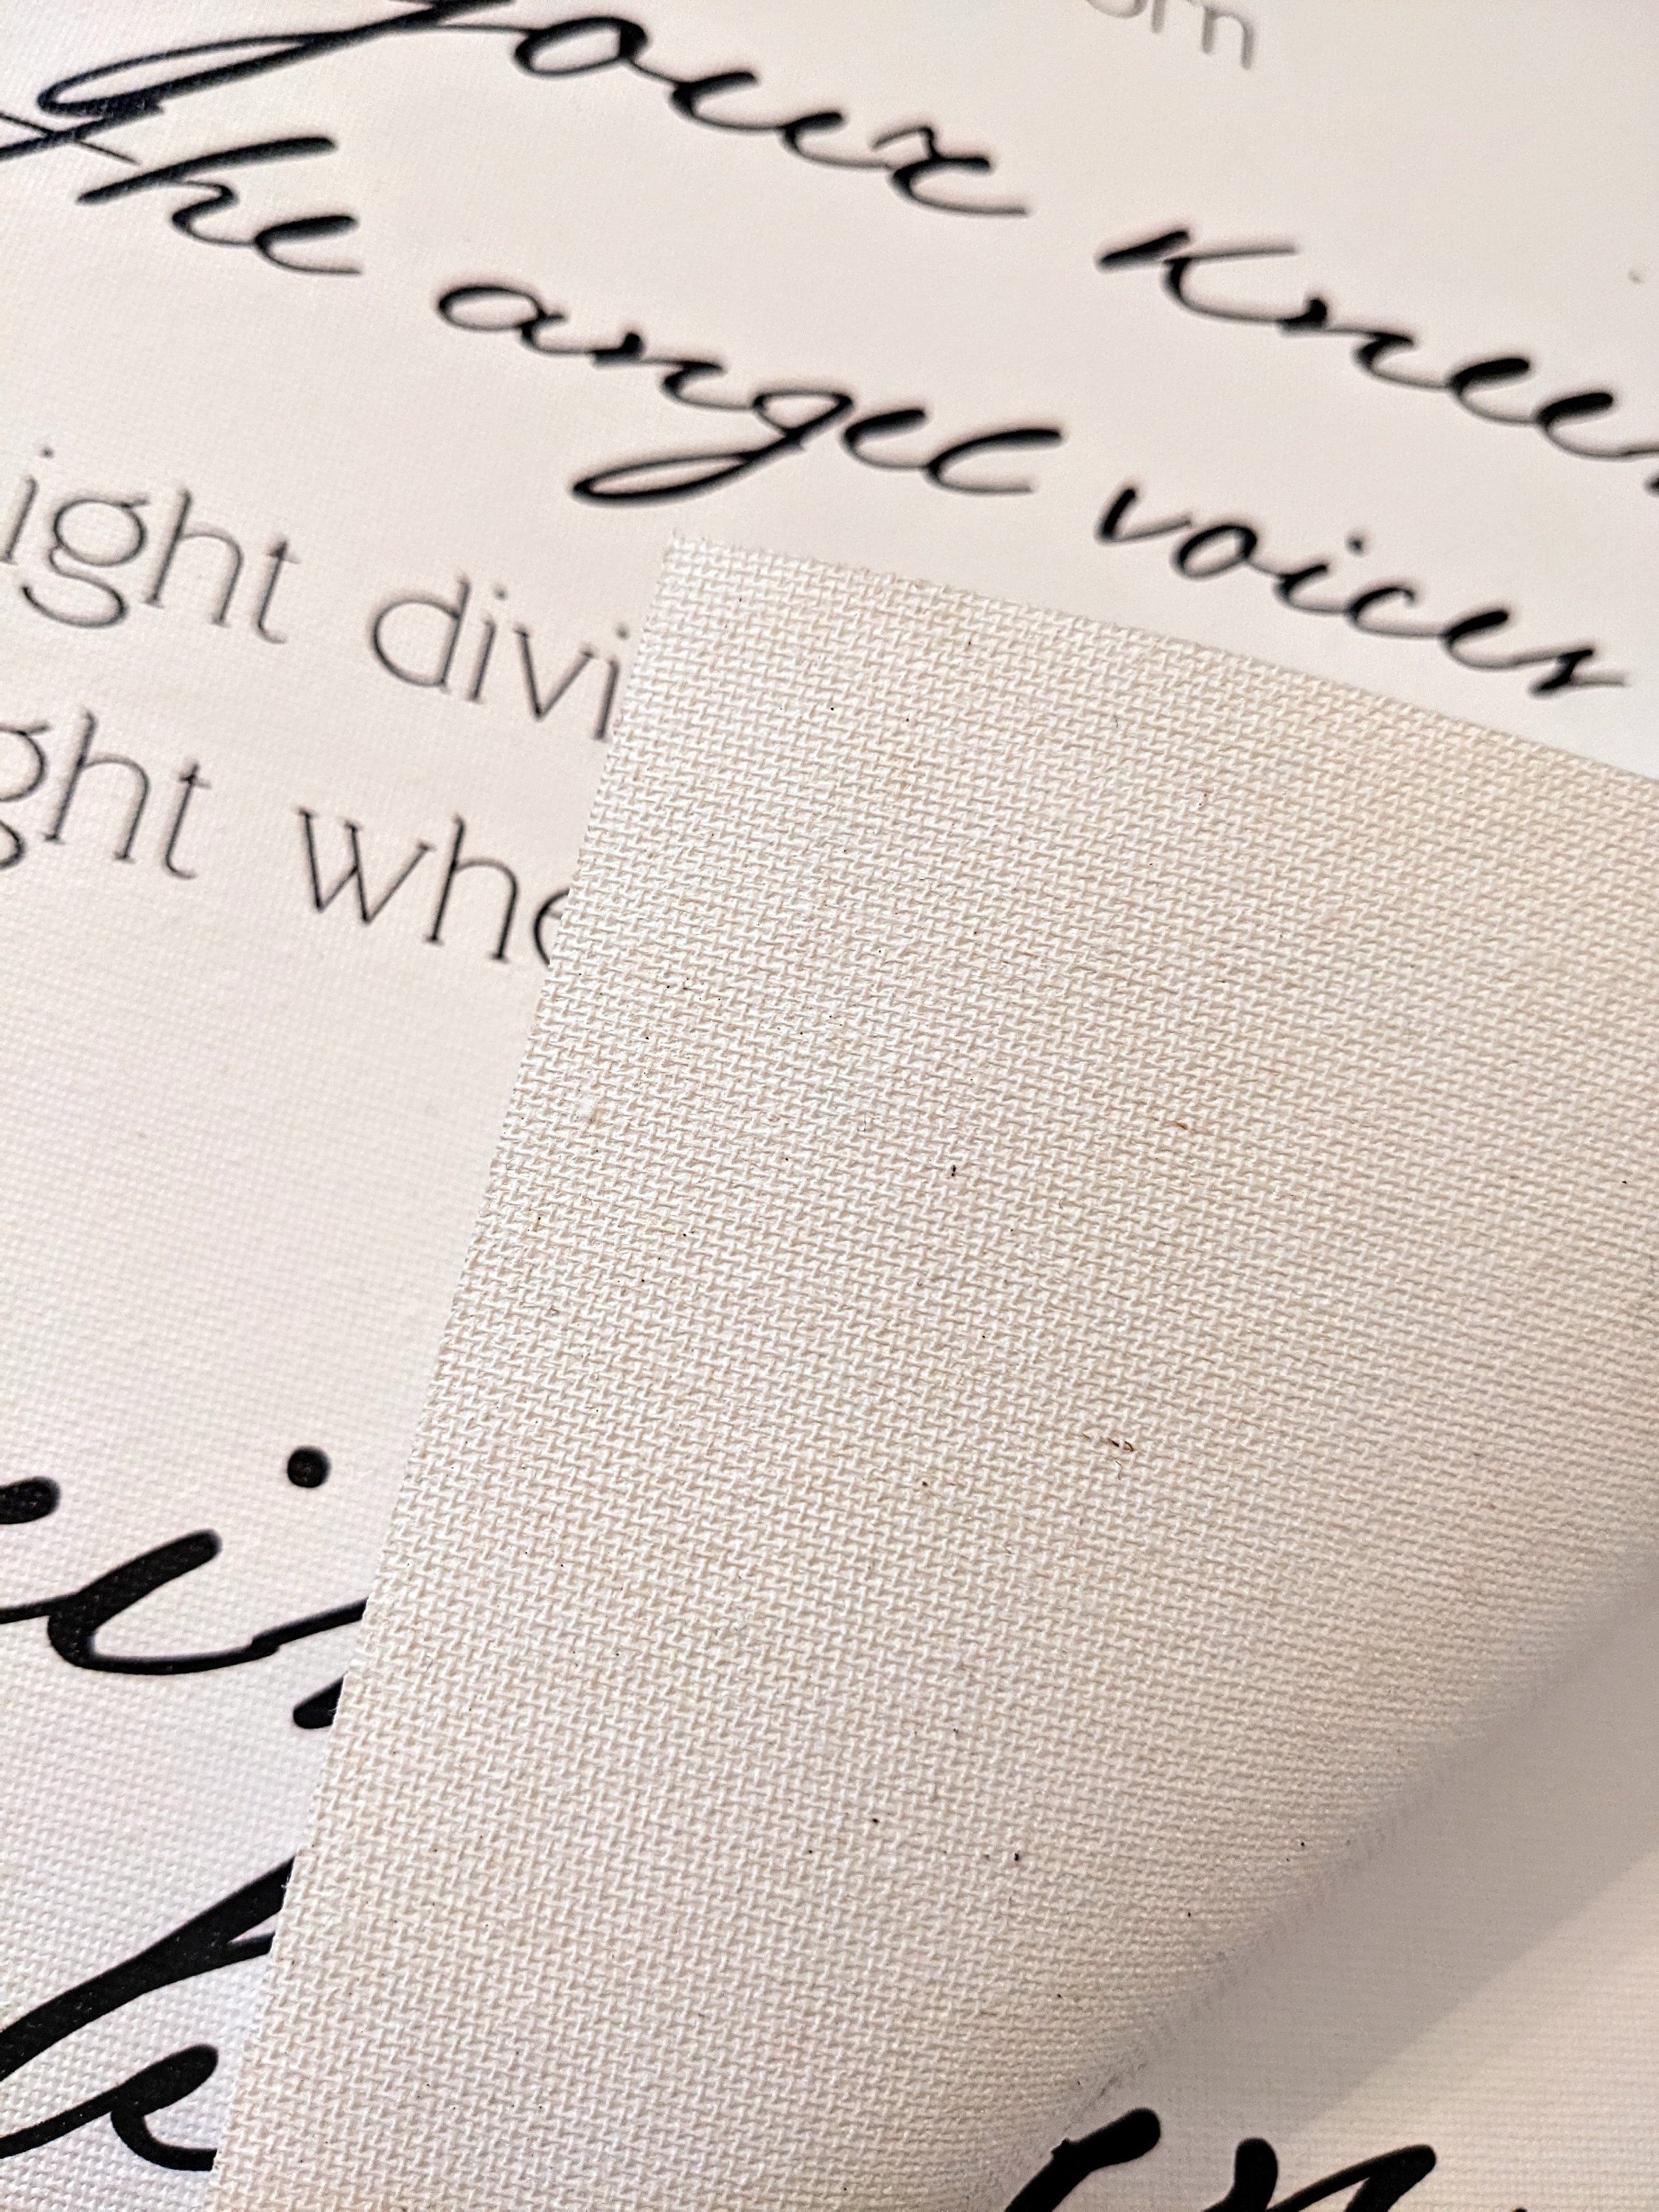 orn
your knees
the angel voices
ight divi
ght whe